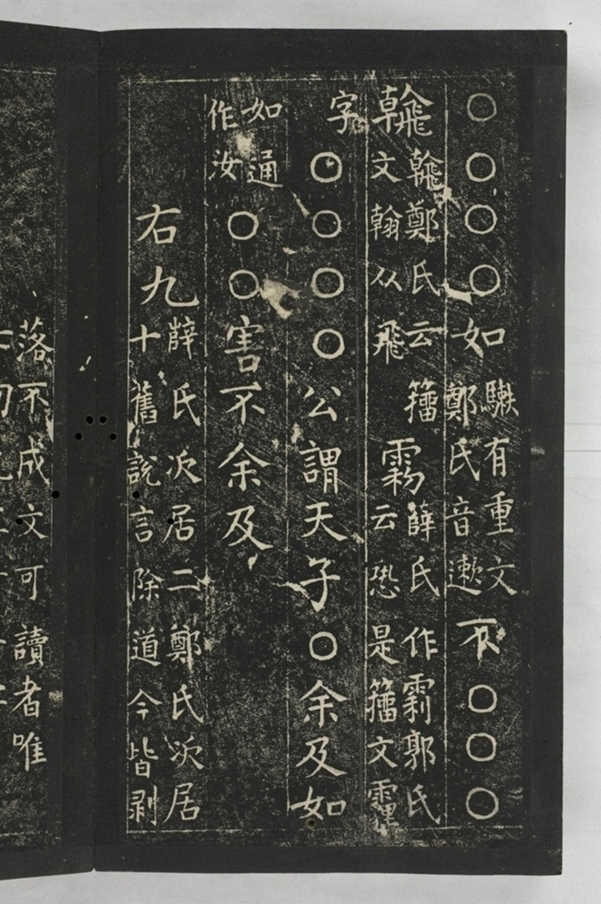 ○○○○如有重文鄭氏音遬不○○○
鄭氏云籒文翰从飛薛氏作郭氏云恐是籒文
字○○○○公謂天子○余及如
如通作汝○○害不余及
右九薛氏次居二鄭氏次居十舊說言除道今皆剥
落不成文可讀者唯